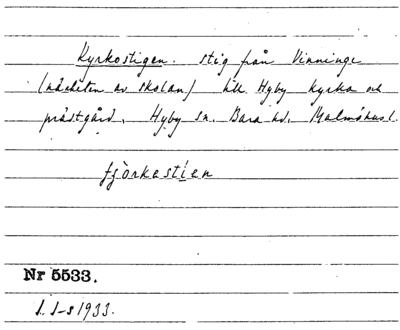 Kyrkostigen. stig från Vinninge
(närheten av skolan) till Hyby kyrka och
prästgård, Hyby sn. Bara hd. Malmöhusl.
Nr 5533.
1933.